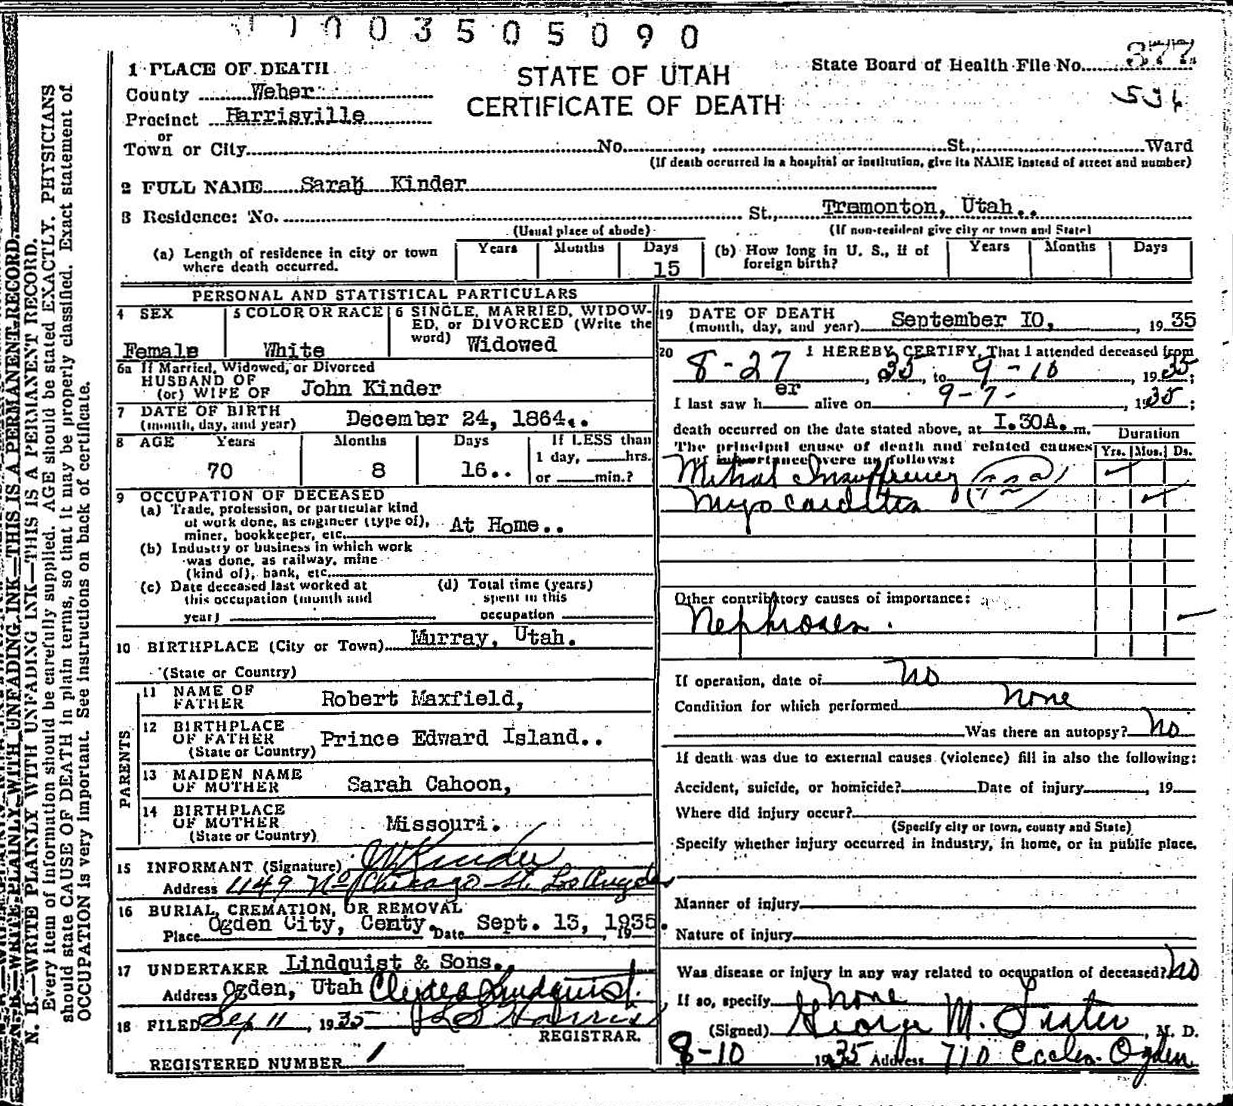 1003505090
STATE OF UTAH
CERTIFICATE OF DEATH
State Board of Health File No. 377
536
1 PLACE OF DEATH
County Weber
Precinct Harrisville
or
Town or City No. , St., Ward
(If death occurred in a hospital or institution, give its NAME instead of street and number)
2 FULL NAME Sarah Kinder
3 Residence: No. St., Tramonton, Utah..
(Usual place of abode) (If non-resident give city or town and State)
(a) Length of residence in city or town where death occurred. Years Months Days 15
(b) How long in U. S., if of foreign birth? Years Months Days
PERSONAL AND STATISTICAL PARTICULARS
4 SEX Female
5 COLOR OR RACE White
6 SINGLE, MARRIED, WIDOWED, or DIVORCED (Write the word) Widowed
6a If Married, Widowed, or Divorced
HUSBAND OF
(or) WIFE OF John Kinder
7 DATE OF BIRTH
(month, day, and year) December 24, 1864..
8 AGE Years 70 Months 8 Days 16.. If LESS than 1 day, hrs. or min.?
9 OCCUPATION OF DECEASED
(a) Trade, profession, or particular kind of work done, as engineer (type of), miner, bookkeeper, etc. At Home..
(b) Industry or business in which work was done, as railway, mine (kind of), bank, etc.
(c) Date deceased last worked at this occupation (month and year)
(d) Total time (years) spent in this occupation
10 BIRTHPLACE (City or Town) Murray, Utah.
(State or Country)
PARENTS
11 NAME OF FATHER Robert Maxfield,
12 BIRTHPLACE OF FATHER (State or Country) Prince Edward Island..
13 MAIDEN NAME OF MOTHER Sarah Cahoon,
14 BIRTHPLACE OF MOTHER (State or Country) Missouri.
15 INFORMANT (Signature) Kinder
Address 1149 No Chicago St. Los Angeles
16 BURIAL, CREMATION, OR REMOVAL
Place Ogden City, Cemty. Date Sept. 13, 1935.
17 UNDERTAKER Lindquist & Sons.
Address Ogden, Utah Clyde Lindquist.
18 FILED Sep 11, 1935 Harris
REGISTRAR.
REGISTERED NUMBER 1
19 DATE OF DEATH
(month, day, and year) September 10, , 1935
20 I HEREBY CERTIFY, That I attended deceased from
8-27, 35 to 9-10, 1935;
I last saw her alive on 9-7-, 1935;
death occurred on the date stated above, at 1.30A. m.
The principal cause of death and related causes of importance were as follows: Duration Yrs. Mos. Ds.
Mitral Insufficiency
Myocarditis
Other contributory causes of importance:
Nephroses.
If operation, date of No
Condition for which performed None
Was there an autopsy? No
If death was due to external causes (violence) fill in also the following:
Accident, suicide, or homicide? Date of injury , 19
Where did injury occur?
(Specify city or town, county and State)
Specify whether injury occurred in industry, in home, or in public place.
Manner of injury
Nature of injury
Was disease or injury in any way related to occupation of deceased? No
If so, specify None
(Signed) George M. , M. D.
8-10 1935 Address 710 Eccles. Ogden
N. B.—WRITE PLAINLY WITH UNFADING INK—THIS IS A PERMANENT RECORD.
Every item of information should be carefully supplied. AGE should be stated EXACTLY. PHYSICIANS
should state CAUSE OF DEATH in plain terms, so that it may be properly classified. Exact statement of
OCCUPATION is very important. See instructions on back of certificate.